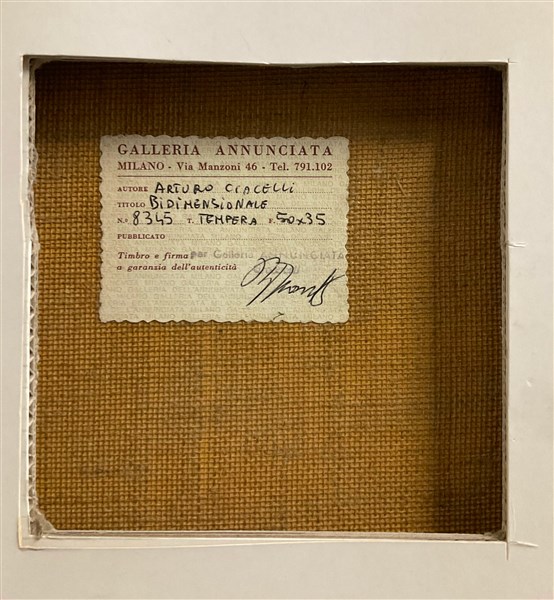 GALLERIA ANNUNCIATA
MILANO - Via Manzoni 46 - Tel. 791.102
AUTORE ARTURO CIACELLI
TITOLO BIDIMENSIONALE
N.o 8345 T. TEMPERA F. 50x35
PUBBLICATO
Timbro e firma per Galleria ANNUNCIATA
a garanzia dell'autenticità